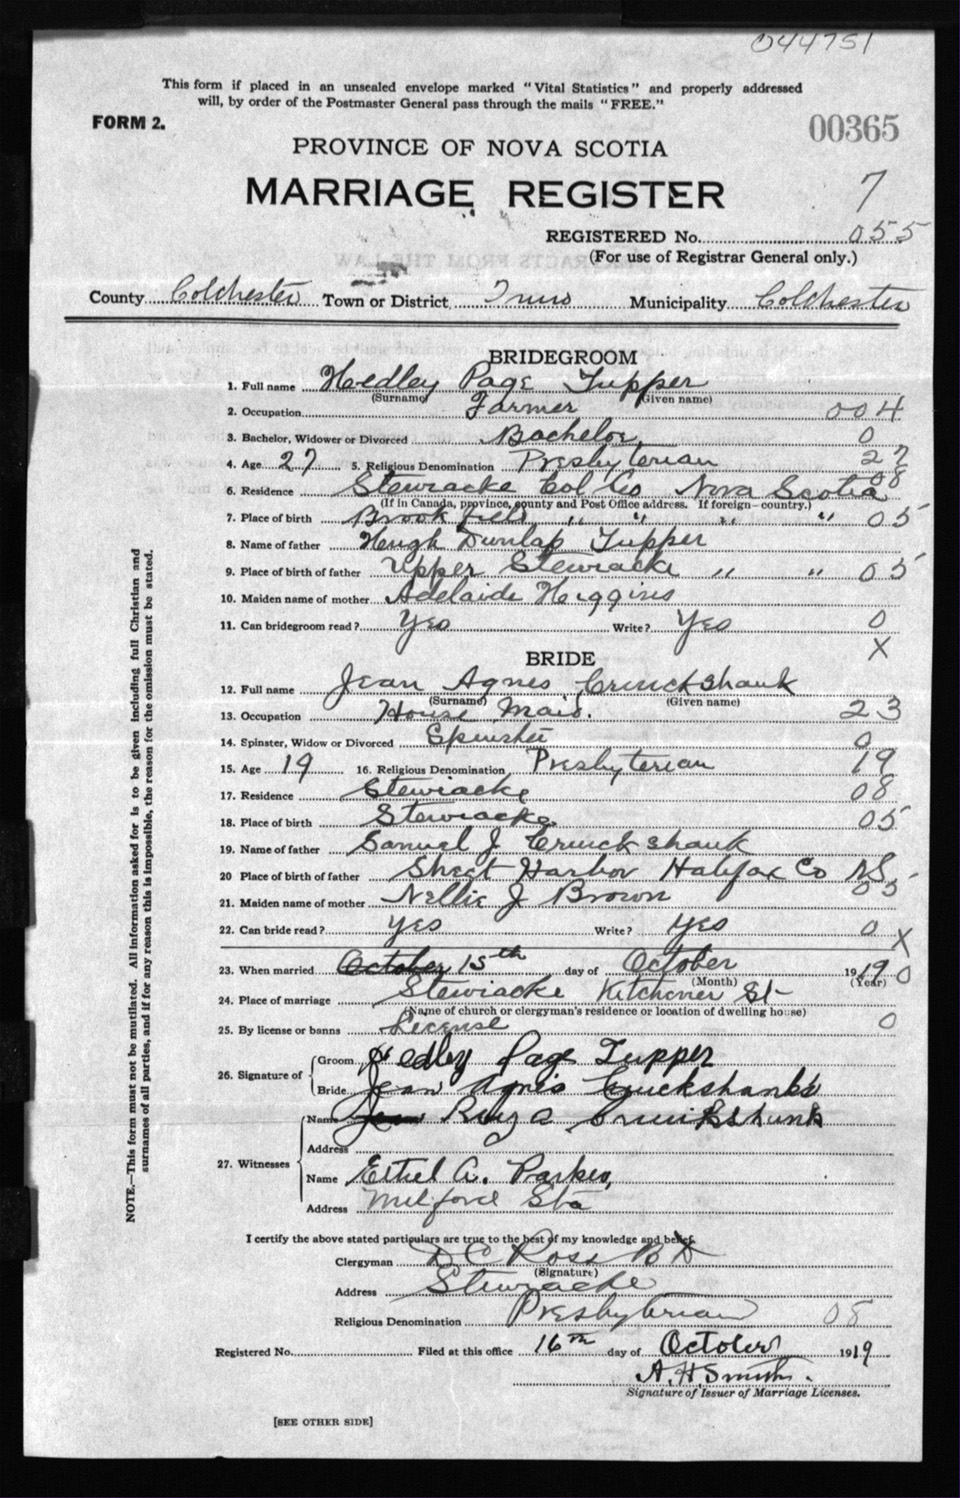 044751
This form if placed in an unsealed envelope marked "Vital Statistics" and properly addressed
will, by order of the Postmaster General pass through the mails "FREE."
FORM 2.
00365
PROVINCE OF NOVA SCOTIA
MARRIAGE REGISTER
7
REGISTERED No. 055
(For use of Registrar General only.)
County Colchester Town or District Truro Municipality Colchester
BRIDEGROOM
1. Full name Hedley Page Tupper
(Surname) (Given name)
2. Occupation Farmer 004
3. Bachelor, Widower or Divorced Bachelor 0
4. Age 27 5. Religious Denomination Presbyterian 27
6. Residence Stewiacke Col Co Nova Scotia 08
(If in Canada, province, county and Post Office address. If foreign—country.)
7. Place of birth Brookfield " " " " 05
8. Name of father Hugh Dunlap Tupper
9. Place of birth of father Upper Stewiacke " " 05
10. Maiden name of mother Adelaide Higgins
11. Can bridegroom read? Yes Write? Yes 0
X
BRIDE
12. Full name Jean Agnes Cruickshank
(Surname) (Given name)
13. Occupation House Maid. 23
14. Spinster, Widow or Divorced Spinster 0
15. Age 19 16. Religious Denomination Presbyterian 19
17. Residence Stewiacke 08
18. Place of birth Stewiacke 05
19. Name of father Samuel J Cruickshank
20 Place of birth of father Sheet Harbor Halifax Co NS 05
21. Maiden name of mother Nellie J Brown
22. Can bride read? yes Write? yes 0
X
23. When married October 15th day of October 1919 0
(Month) (Year)
24. Place of marriage Stewiacke Kitchener St
(Name of church or clergyman's residence or location of dwelling house)
25. By license or banns License 0
26. Signature of Groom Hedley Page Tupper
Bride Jean Agnes Cruickshanks
27. Witnesses Name Jean Cruikshank
Address
Name Ethel A. Parker,
Address Milford Sta
I certify the above stated particulars are true to the best of my knowledge and belief.
Clergyman D C Ross B D
(Signature)
Address Stewiacke
Religious Denomination Presbyterian 08
Registered No. Filed at this office 16th day of October 1919
A. H. Smith.
Signature of Issuer of Marriage Licenses.
[SEE OTHER SIDE]
NOTE.—This form must not be mutilated. All information asked for is to be given including full Christian and
surnames of all parties, and if for any reason this is impossible, the reason for the omission must be stated.